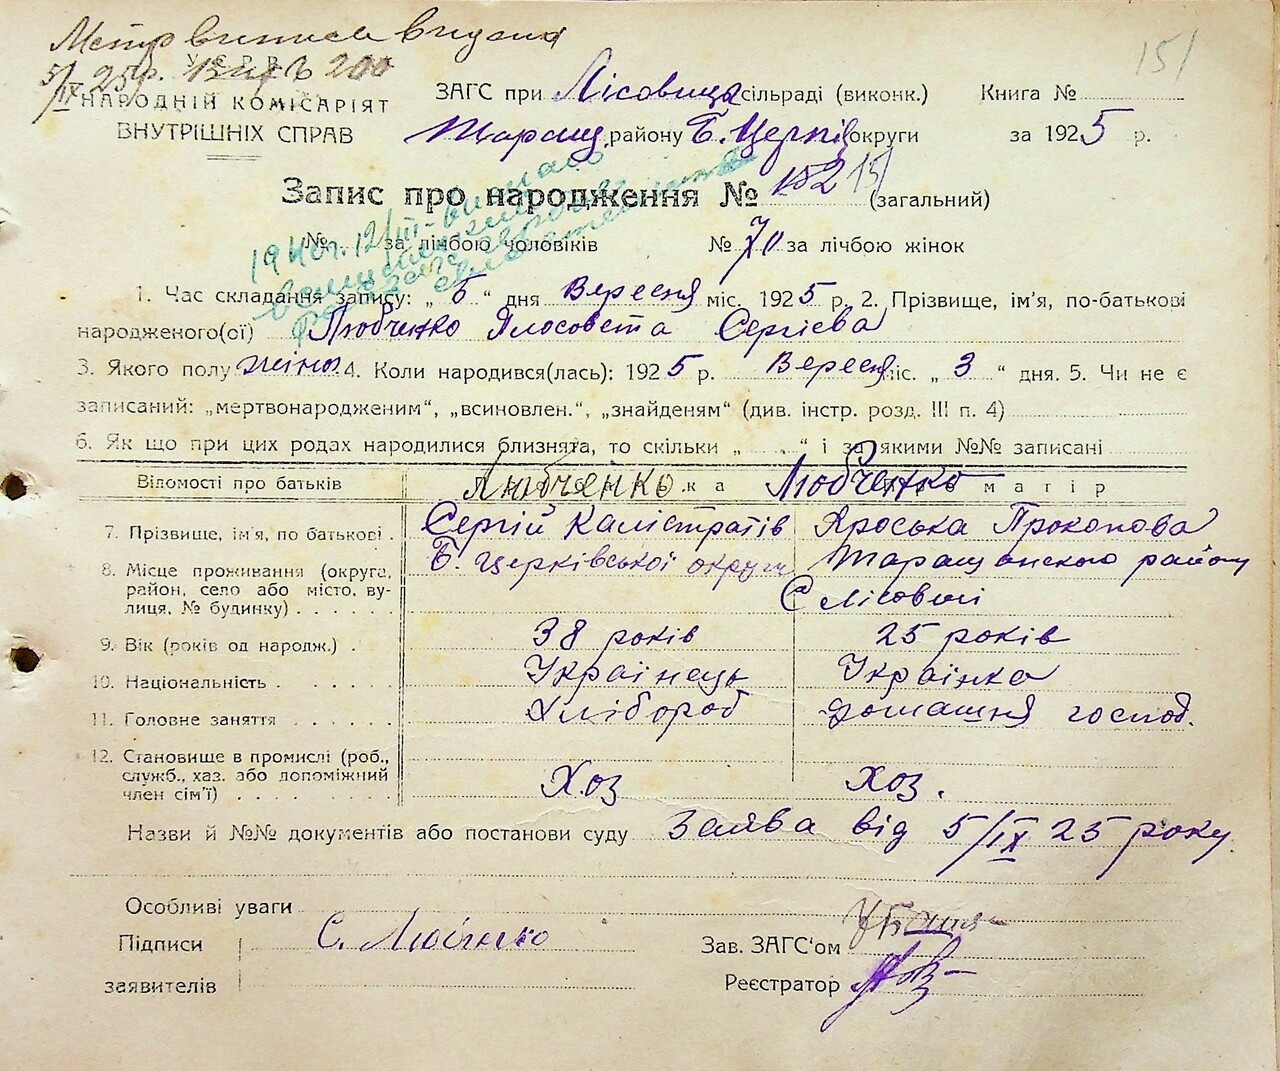 151
5/IX 25 р. 200
У.С.Р.Р.
НАРОДНІЙ КОМІСАРІЯТ
ВНУТРІШНІХ СПРАВ
ЗАГС при Лісовицькій сільраді (виконк.) Книга №
Таращ. району Б. Церків округи за 1925 р.
Запис про народження № 152 151 (загальний)
№ за лічбою чоловіків № 70 за лічбою жінок
1. Час складання запису: „ 5 “ дня Вересня міс. 1925 р. 2. Прізвище, ім’я, по-батькові
народженого(ої) Любченко Ялосовета Сергієва
3. Якого полу жіно. 4. Коли народився(лась): 1925 р. Вересня міс. „ 3 “ дня. 5. Чи не є
записаний: „мертвонародженим“, „всиновлен.“, „знайденям“ (див. інстр. розд. III п. 4)
6. Як що при цих родах народилися близнята, то скільки „ “ і за якими №№ записані
Відомості про батьків Любченко Любченко матір
7. Прізвище, ім’я, по батькові . Сергій Калістратів Яроська Прокопова
8. Місце проживання (округа, Б. Церківської округи Таращанского району
район, село або місто, ву-
лиця, № будинку) . . . . С Лісовиі
9. Вік (років од народж.) . 38 років 25 років
10. Національність . . . . . Українець Українка
11. Головне заняття . . . . . . Хлібороб домашня господ.
12. Становище в промислі (роб.,
служб., хаз. або допоміжний
член сім’ї) . . . . . . . . Хоз Хоз.
Назви й №№ документів або постанови суду Заява від 5/IX 25 року.
Особливі уваги
Підписи С. Любченко Зав. ЗАГС‘ом
заявителів Реєстратор